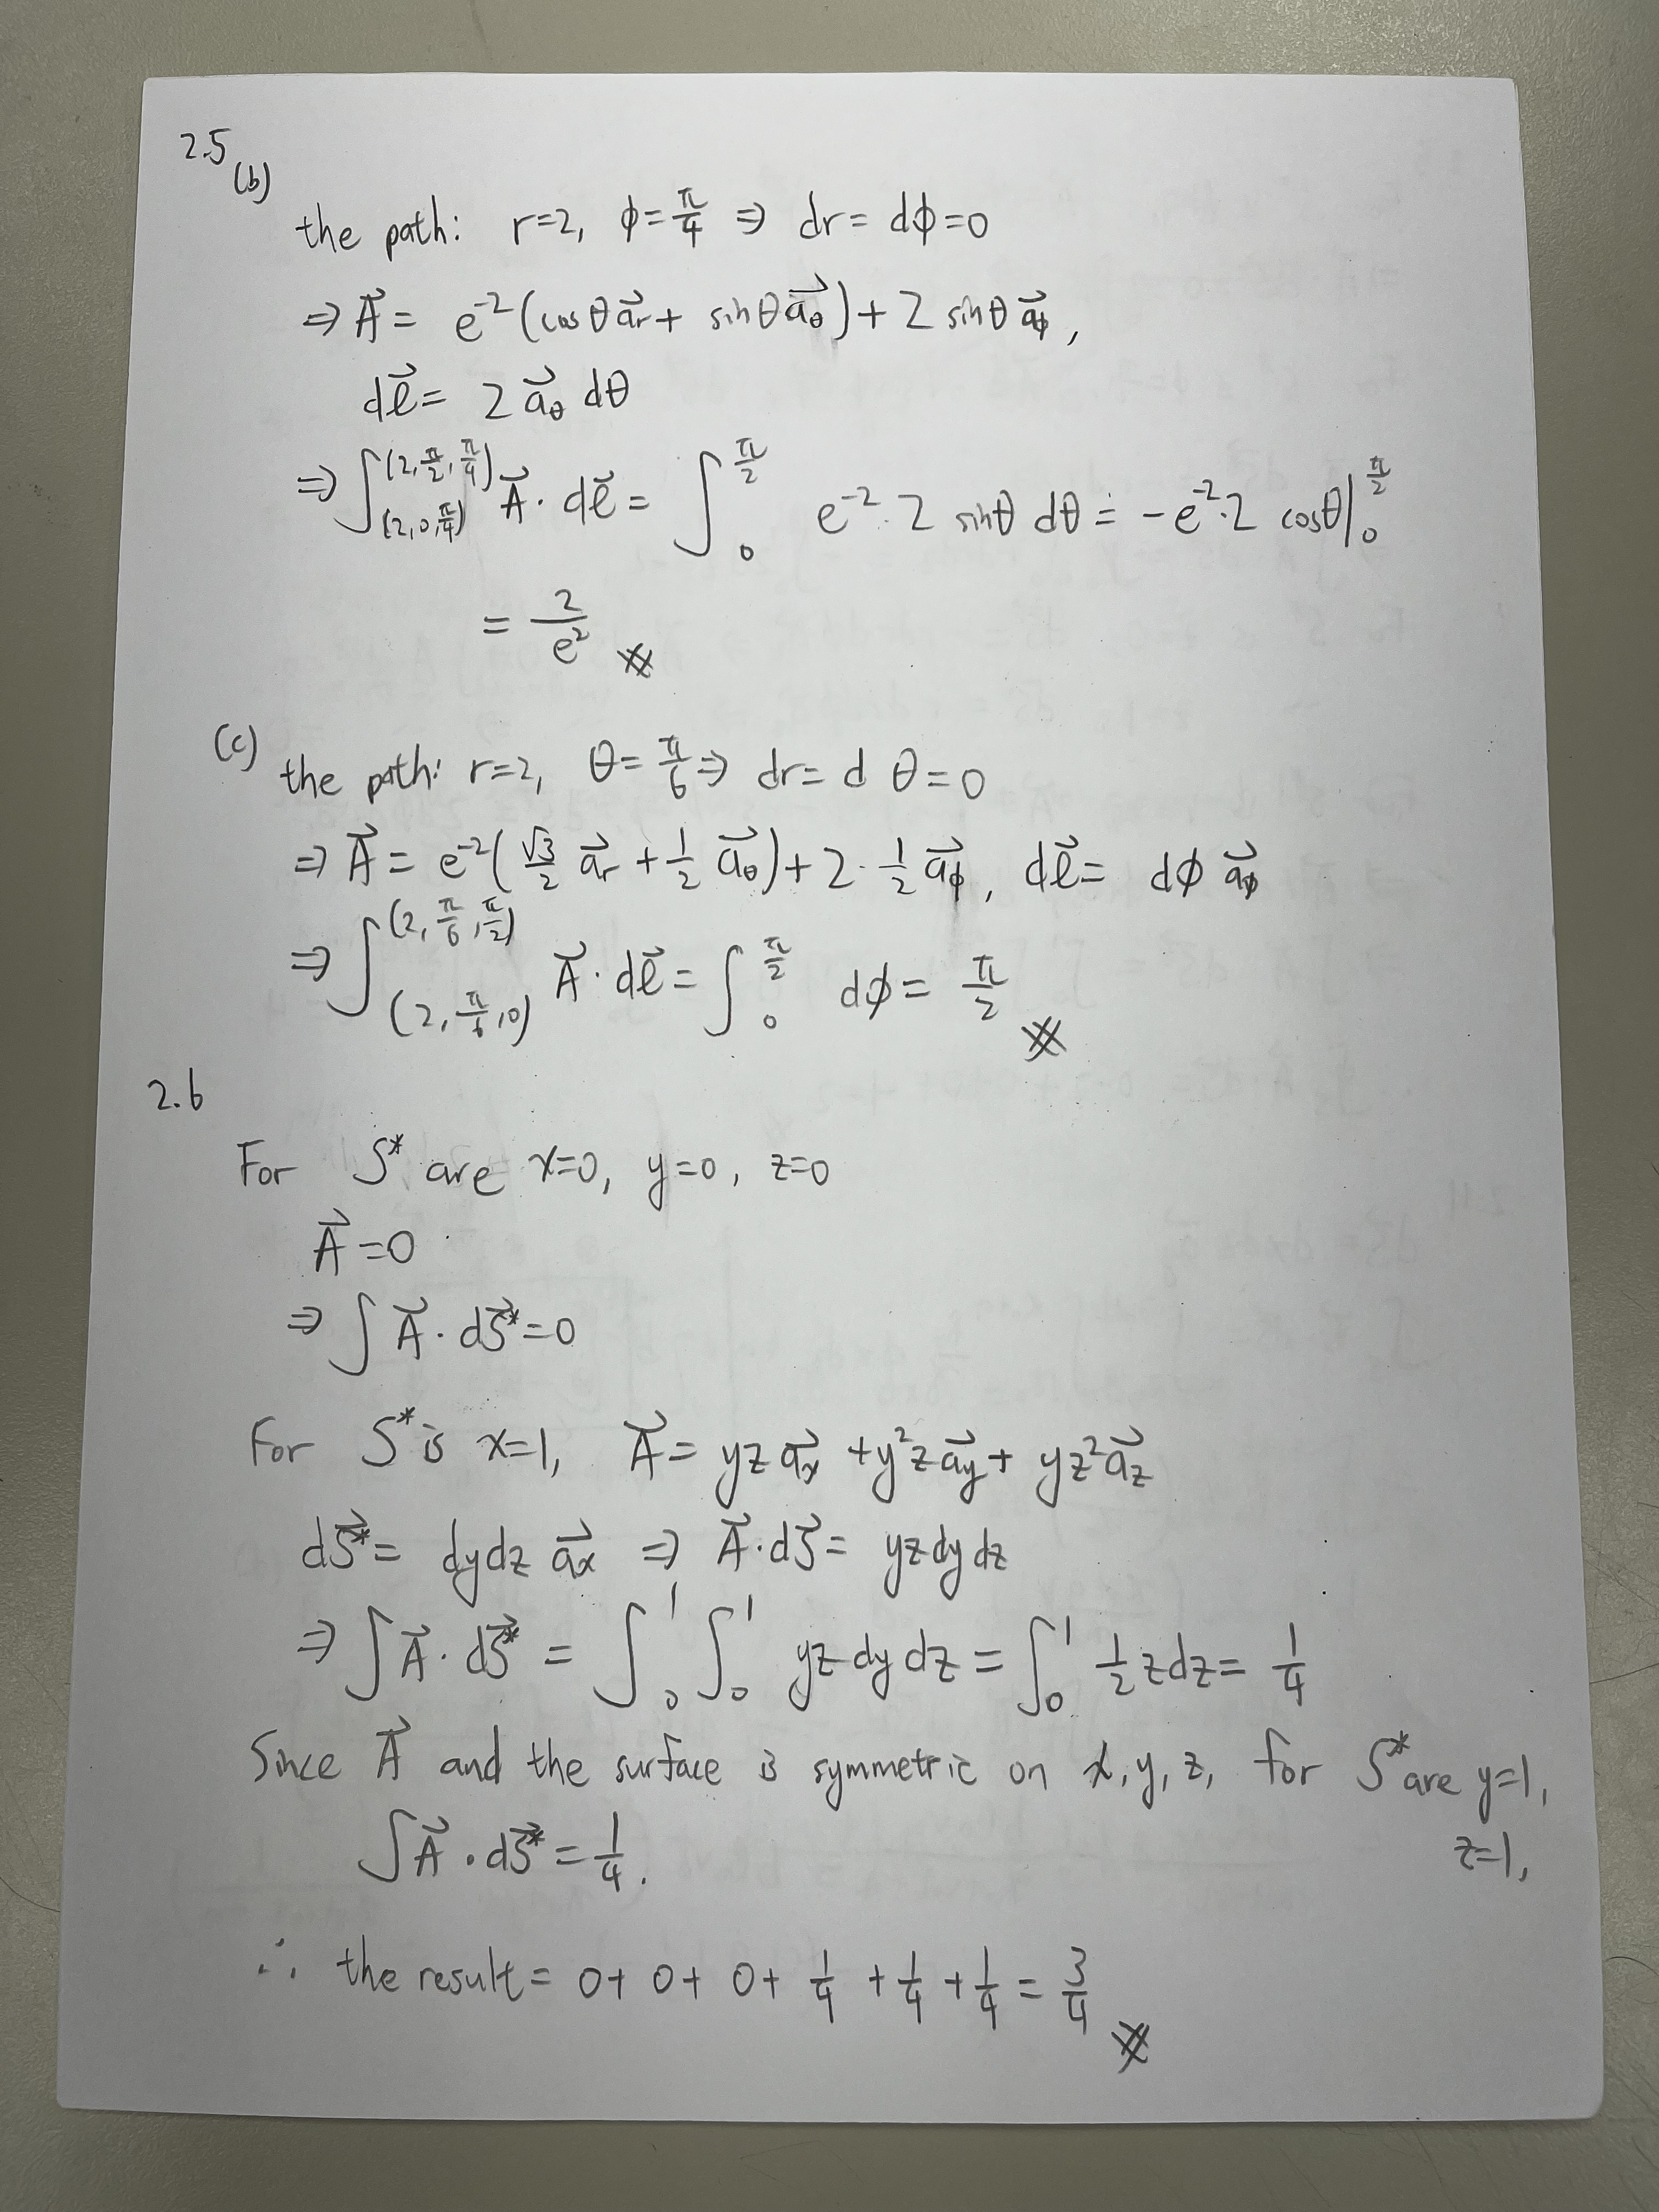 2.5
(b)
the path: r=2, ϕ=π/4 ⇒ dr=dϕ=0
⇒ A⃗ = e⁻²(cosθ a⃗r + sinθ a⃗θ) + 2 sinθ a⃗ϕ,
dℓ⃗ = 2 a⃗θ dθ
⇒ ∫_(2,0,π/4)^(2,π/2,π/4) A⃗·dℓ⃗ = ∫_0^(π/2) e⁻²·2 sinθ dθ = -e⁻²·2 cosθ|_0^(π/2)
= 2/e² ※
(c)
the path: r=2, θ=π/6 ⇒ dr=dθ=0
⇒ A⃗ = e⁻²(√3/2 a⃗r + 1/2 a⃗θ) + 2·1/2 a⃗ϕ, dℓ⃗ = dϕ a⃗ϕ
⇒ ∫_(2,π/6,0)^(2,π/6,π/2) A⃗·dℓ⃗ = ∫_0^(π/2) dϕ = π/2 ※
2.6
For S* are x=0, y=0, z=0
A⃗=0
⇒ ∫A⃗·dS⃗*=0
For S* is x=1, A⃗ = yz a⃗x + y²z a⃗y + yz² a⃗z
dS⃗* = dydz a⃗x ⇒ A⃗·dS⃗ = yzdydz
⇒ ∫A⃗·dS⃗* = ∫_0^1 ∫_0^1 yzdydz = ∫_0^1 1/2 zdz = 1/4
Since A⃗ and the surface is symmetric on x, y, z, for S* are y=1,
z=1,
∫A⃗·dS⃗* = 1/4.
∴ the result = 0+0+0+1/4+1/4+1/4 = 3/4 ※